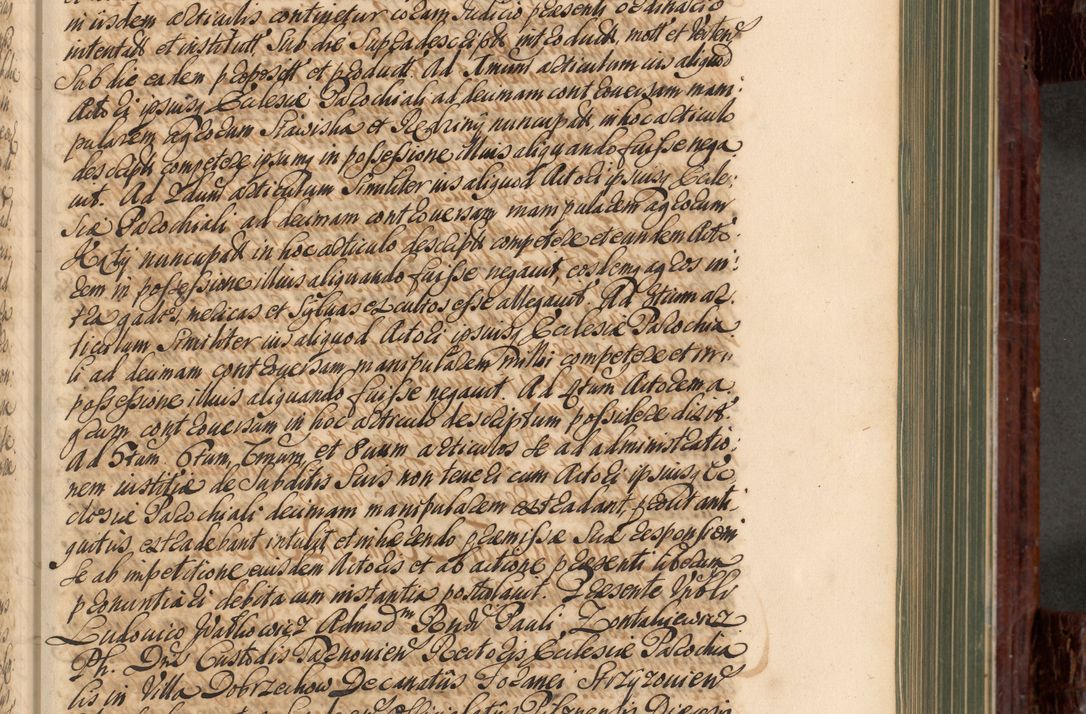 in iisdem articulis continetur coram Judicio præsenti ordinario
intentatt et institutt Sub die Supradescripta introductt, mott et
Sub die eadem proposit et product. Ad 1mum articulum ius aliquod
Actori ipsiusq Ecclesiæ Parochiali ad decimam controversam mani
pularem agrorum Stawiska et Kedziny nuncupatt, in hoc articulo
descript competere ipsumq in possessione illius aliquando fuisse nega
vit. Ad 2dum articulum Similiter ius aliquod Actori ipsiusq Eccle:
siæ Parochiali ad decimam controversam manipularem agrorum
Kąty nuncupatt in hoc articulo descript competere et eundem Acto:
rem in possessione illius aliquando fuisse negavit, eosdemq agros in:
tra gades, mericas et Sylvas excultos esse allegavit. Ad 3tium ar:
ticulum Similiter ius aliquod Actori ipsiusq Ecclesiæ Parochia
li ad decimam controversam manipularem competere et in
possessione illius aliquando fuisse negavit. Ad 4tum Actorem a
grum controversum in hoc articulo descriptum possidere dixit.
Ad 5tum, 6tum, 7mum, et 8vum articulos se ad administratio:
nem iustitiæ de Subditis Suis non teneri cum Actori ipsiusq Ec
clesiæ Parochiali decimam manipularem extradant, prout anti
quitus extradebant intulit et inhærendo præmissæ Suæ responsioni
se ab impetitione eiusdem Actoris et ab actione præsenti liberum
pronuntiari debita cum instantia postulavit. Præsente Nobli
Ludovico Walkowicz Admodm Rndi Pauli
Ph. Dris Custodis Tarnovien Rectoris Ecclesiæ Parochia
lis in Villa Dobrzechow Decanatus Foranei Strzyżovien